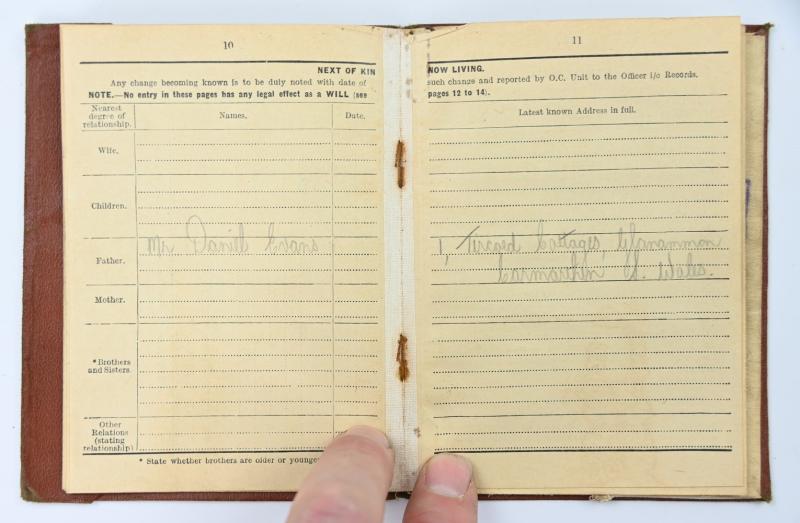 10
NEXT OF KIN
Any change becoming known is to be duly noted with date of
NOTE.—No entry in these pages has any legal effect as a WILL (see
Nearest
degree of
relationship.
Names.
Date.
Wife.
Children.
Father.
Mr Daniel Evans
Mother.
* Brothers
and Sisters.
Other
Relations
(stating
relationship)
* State whether brothers are older or younger
11
NOW LIVING.
such change and reported by O.C. Unit to the Officer i/c Records.
pages 12 to 14).
Latest known Address in full.
1, Tircoed Cottages, Glanamman
Carmarthen S. Wales.